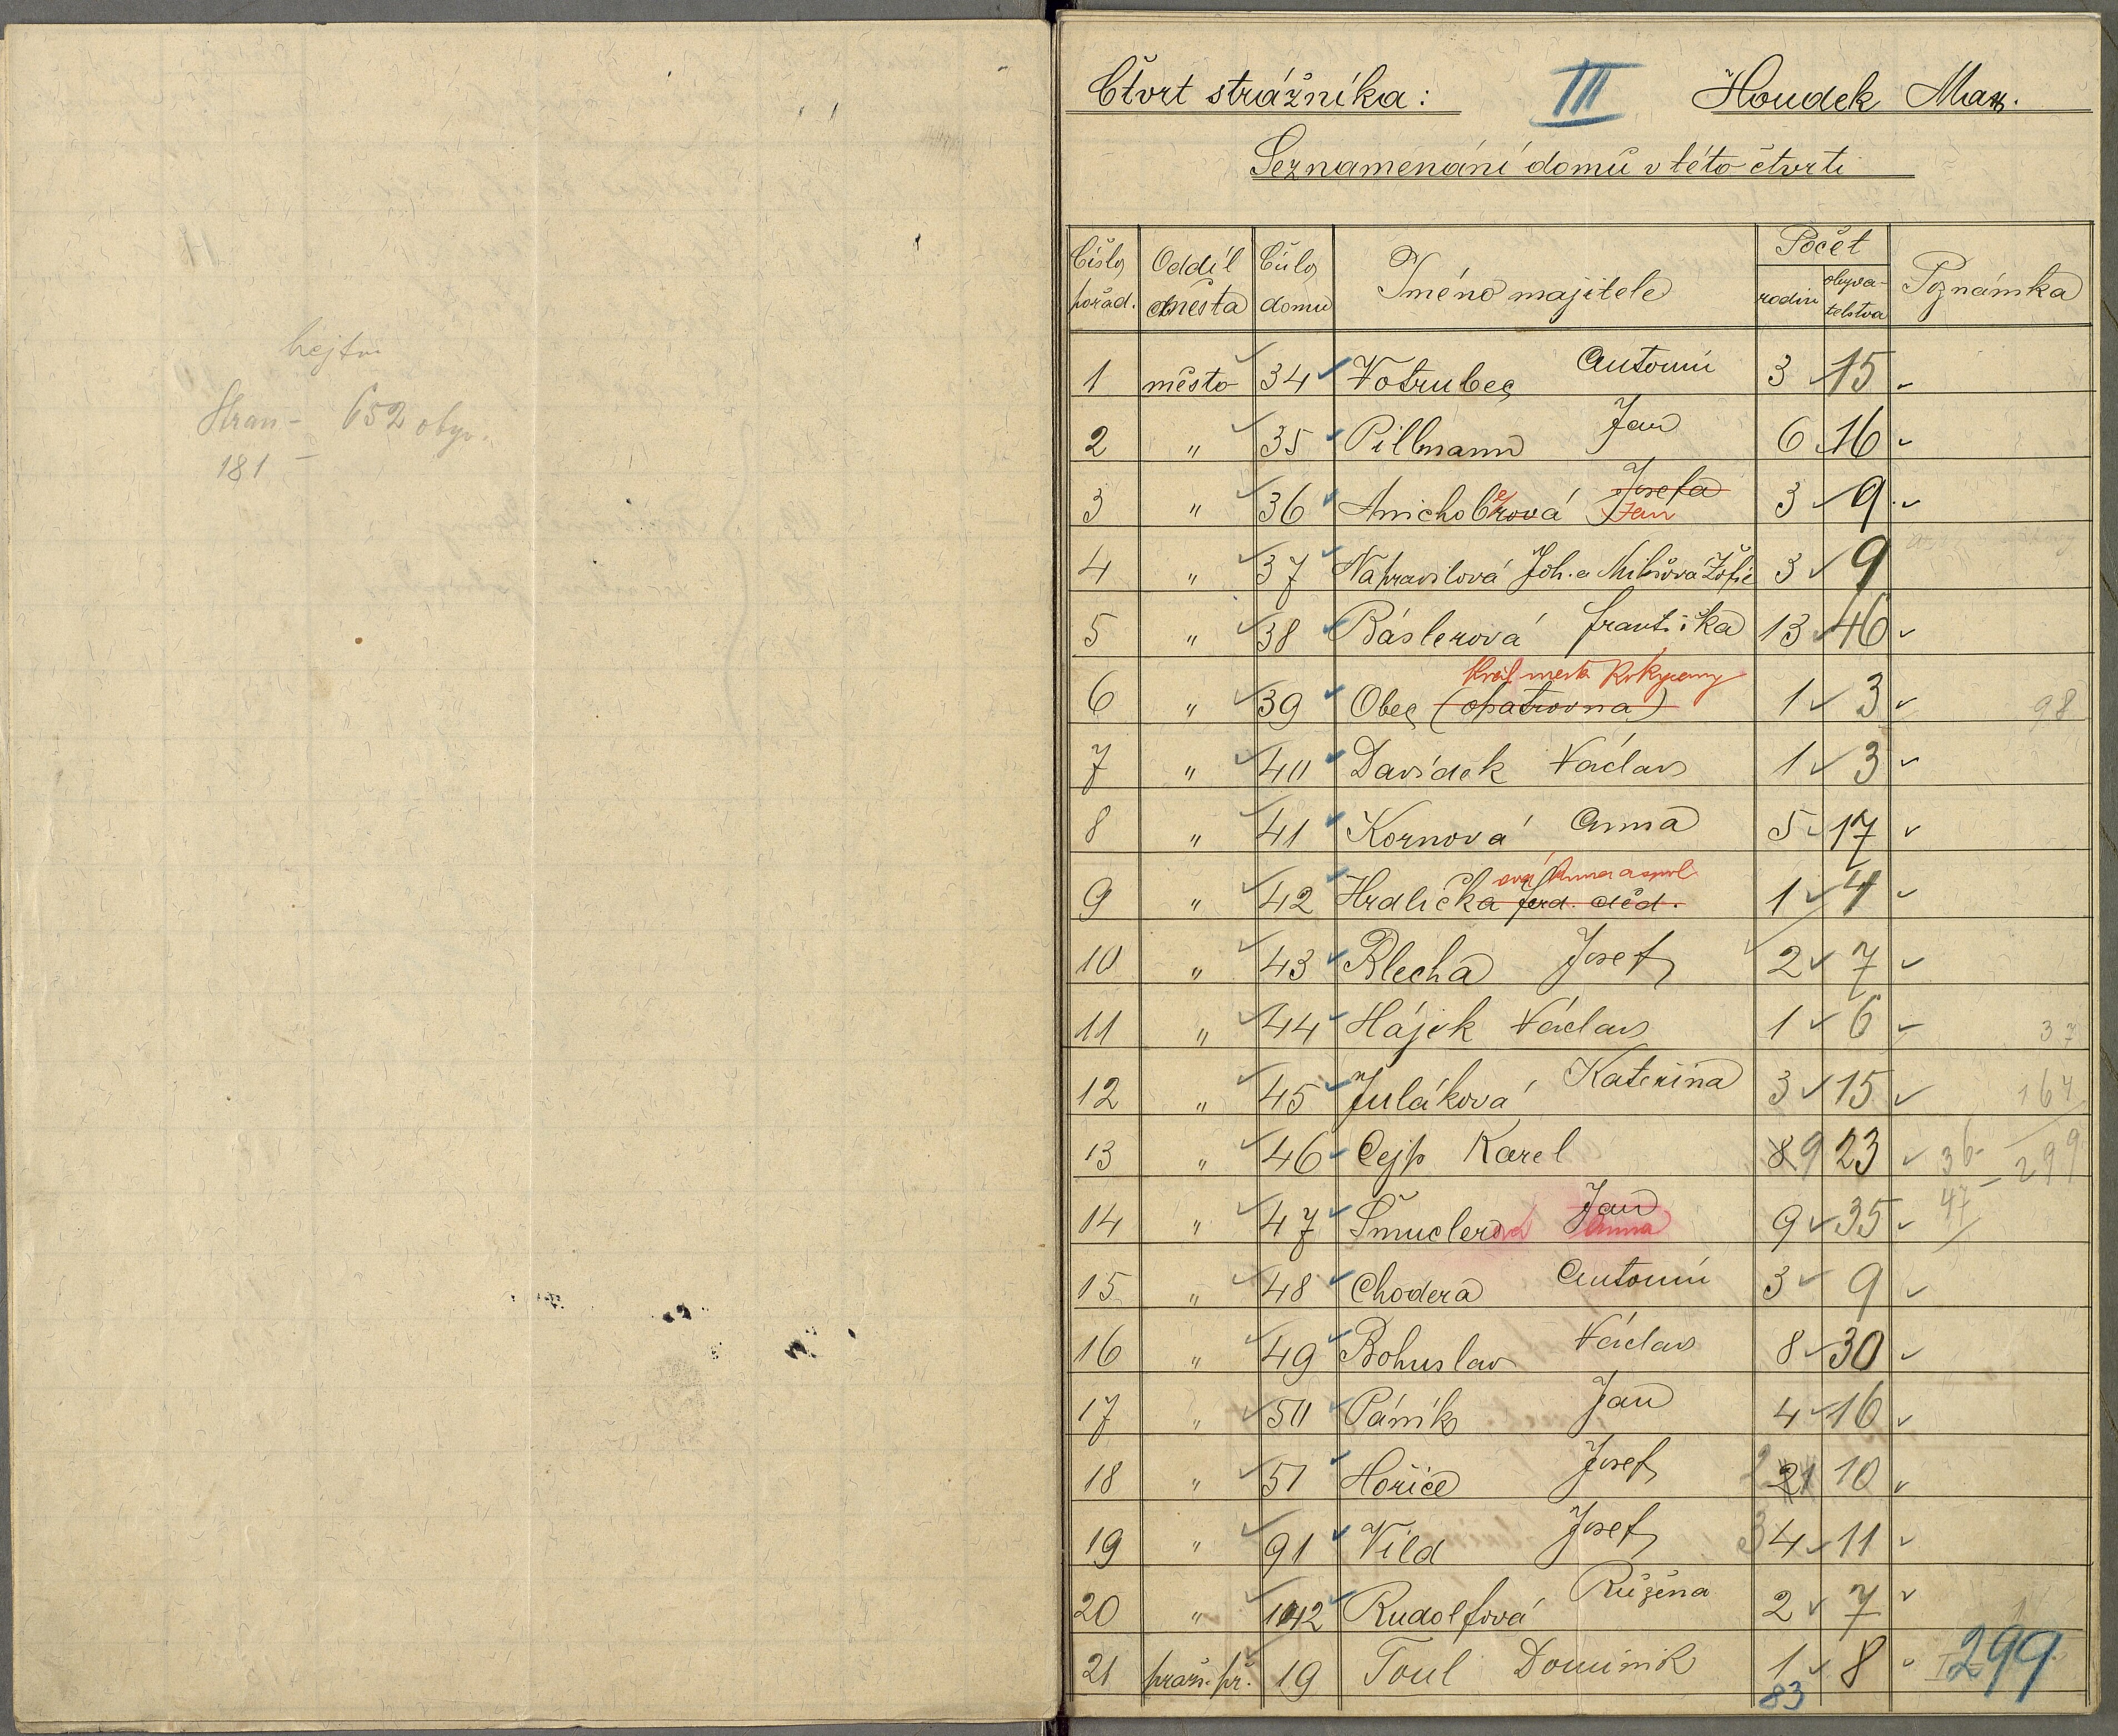 hejtm
Stran - 652 obyv.
181 -
Čtvrt strážníka: III Houdek Max.
Seznamenání domů v této čtvrti
Číslo pořad. Oddíl města Číslo domu Jméno majitele Počet rodin obyvatelstva Poznámka
1 město 34 Votrubec Antonín 3 15
2 " 35 Pillmann Jan 6 16
3 " 36 Josefa Jan 3 9
4 " 37 Nahravilová Joh. a Žofie 3 9
5 " 38 Báslerová Františka 13 46
6 " 39 Obec (opatrovna) Král. město Rokycany 1 3 98
7 " 40 Davídek Václav 1 3
8 " 41 Kornová Anna 5 17
9 " 42 Hrdlička Ferd. děd. ová Anna a spol. 1 4
10 " 43 Blecha Josef 2 7
11 " 44 Hájek Václav 1 6 37
12 " 45 Juláková Kateřina 3 15 164
13 " 46 Cejp Karel 8 9 23 36 - 299
14 " 47 Šmuclerová Jan Anna 9 35 47
15 " 48 Chodera Antonín 3 9
16 " 49 Bohuslav Václav 8 30
17 " 50 Páník Jan 4 16
18 " 51 Hořice Josef 2 10
19 " 91 Vild Josef 3 4 11
20 " 142 Rudolfová Růžena 2 7
21 praž. př. 19 Toul Dominik 1 8 299
83